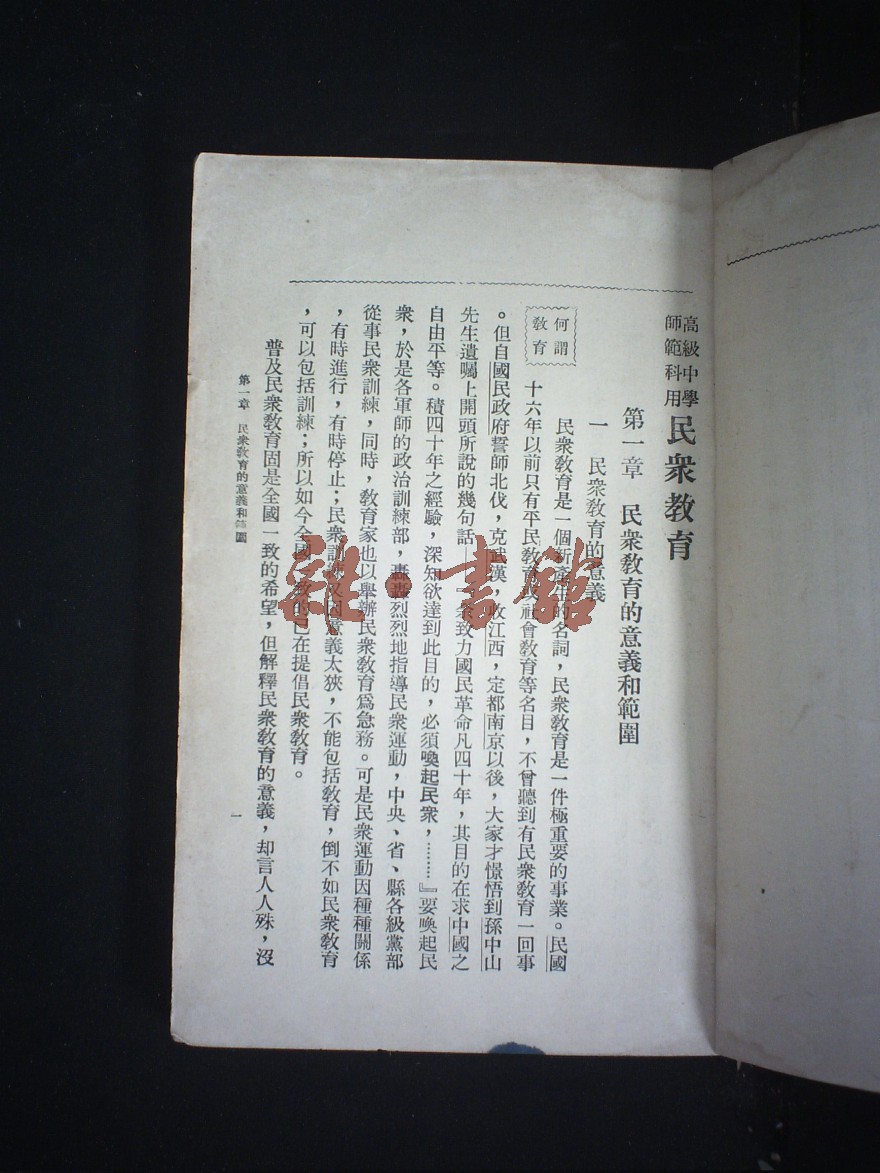 高級中學
師範科用
民衆教育
第一章　民衆教育的意義和範圍
一　民衆教育的意義
何謂
教育
民衆教育是一個新產生的名詞，民衆教育是一件極重要的事業。民國
十六年以前只有平民教育或社會教育等名目，不曾聽到有民衆教育一回事
。但自國民政府誓師北伐，克武漢，收江西，定都南京以後，大家才憬悟到孫中山
先生遺囑上開頭所說的幾句話——余致力國民革命凡四十年，其目的在求中國之
自由平等。積四十年之經驗，深知欲達到此目的，必須喚起民衆，………』要喚起民
衆，於是各軍師的政治訓練部，轟轟烈烈地指導民衆運動，中央、省、縣各級黨部
從事民衆訓練，同時，教育家也以舉辦民衆教育爲急務。可是民衆運動因種種關係
，有時進行，有時停止；民衆訓練又因意義太狹，不能包括教育，倒不如民衆教育
，可以包括訓練；所以如今全國一致的已在提倡民衆教育。
普及民衆教育固是全國一致的希望，但解釋民衆教育的意義，却言人人殊，沒
第一章　民衆教育的意義和範圍
一
雜·書館